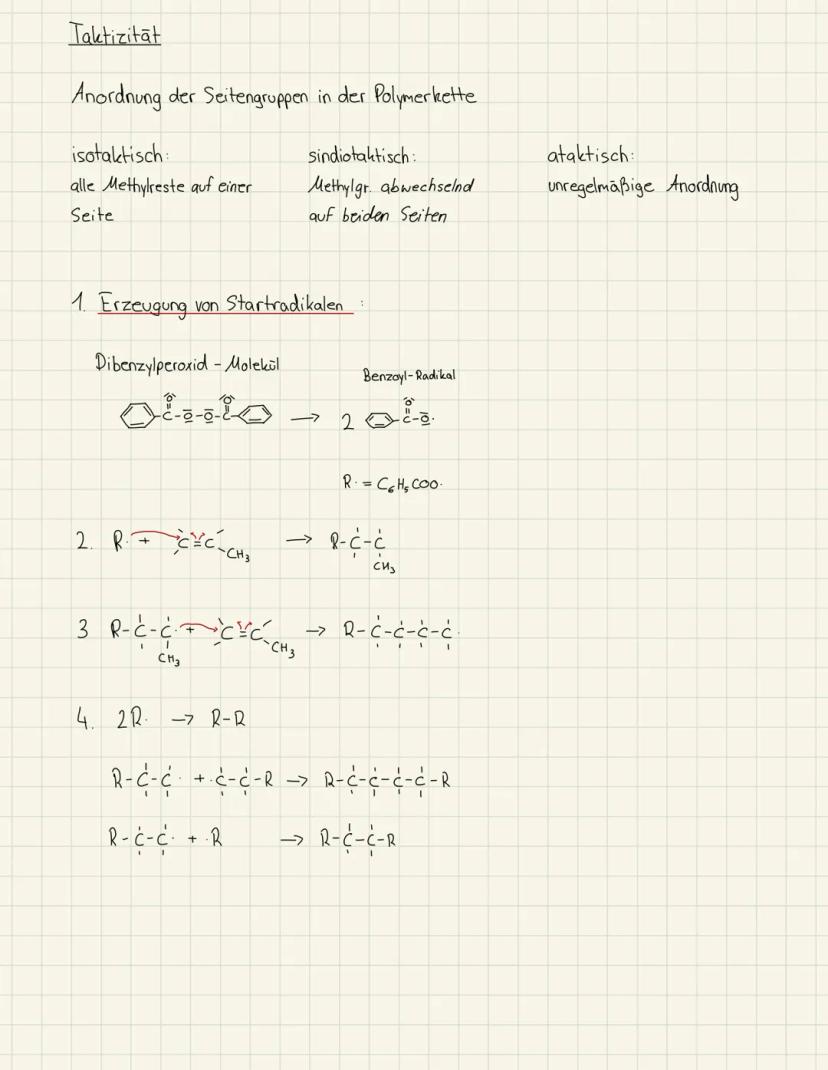 Taktizität
Anordnung der Seitengruppen in der Polymerkette
isotaktisch:
alle Methylreste auf einer
Seite
sindiotaktisch:
Methylgr. abwechselnd
auf beiden Seiten
ataktisch:
unregelmäßige Anordnung
1. Erzeugung von Startradikalen :
Dibenzylperoxid - Molekül
Benzoyl-Radikal
C-O-O-C → 2 C-O·
O O O
R· = C6H5COO·
2. R· + C=C → R-C-C
CH3 CH3
3 R-C-C· + C=C → R-C-C-C-C·
CH3 CH3
4. 2R· → R-R
R-C-C· + ·C-C-R → R-C-C-C-C-R
R-C-C· + ·R → R-C-C-R